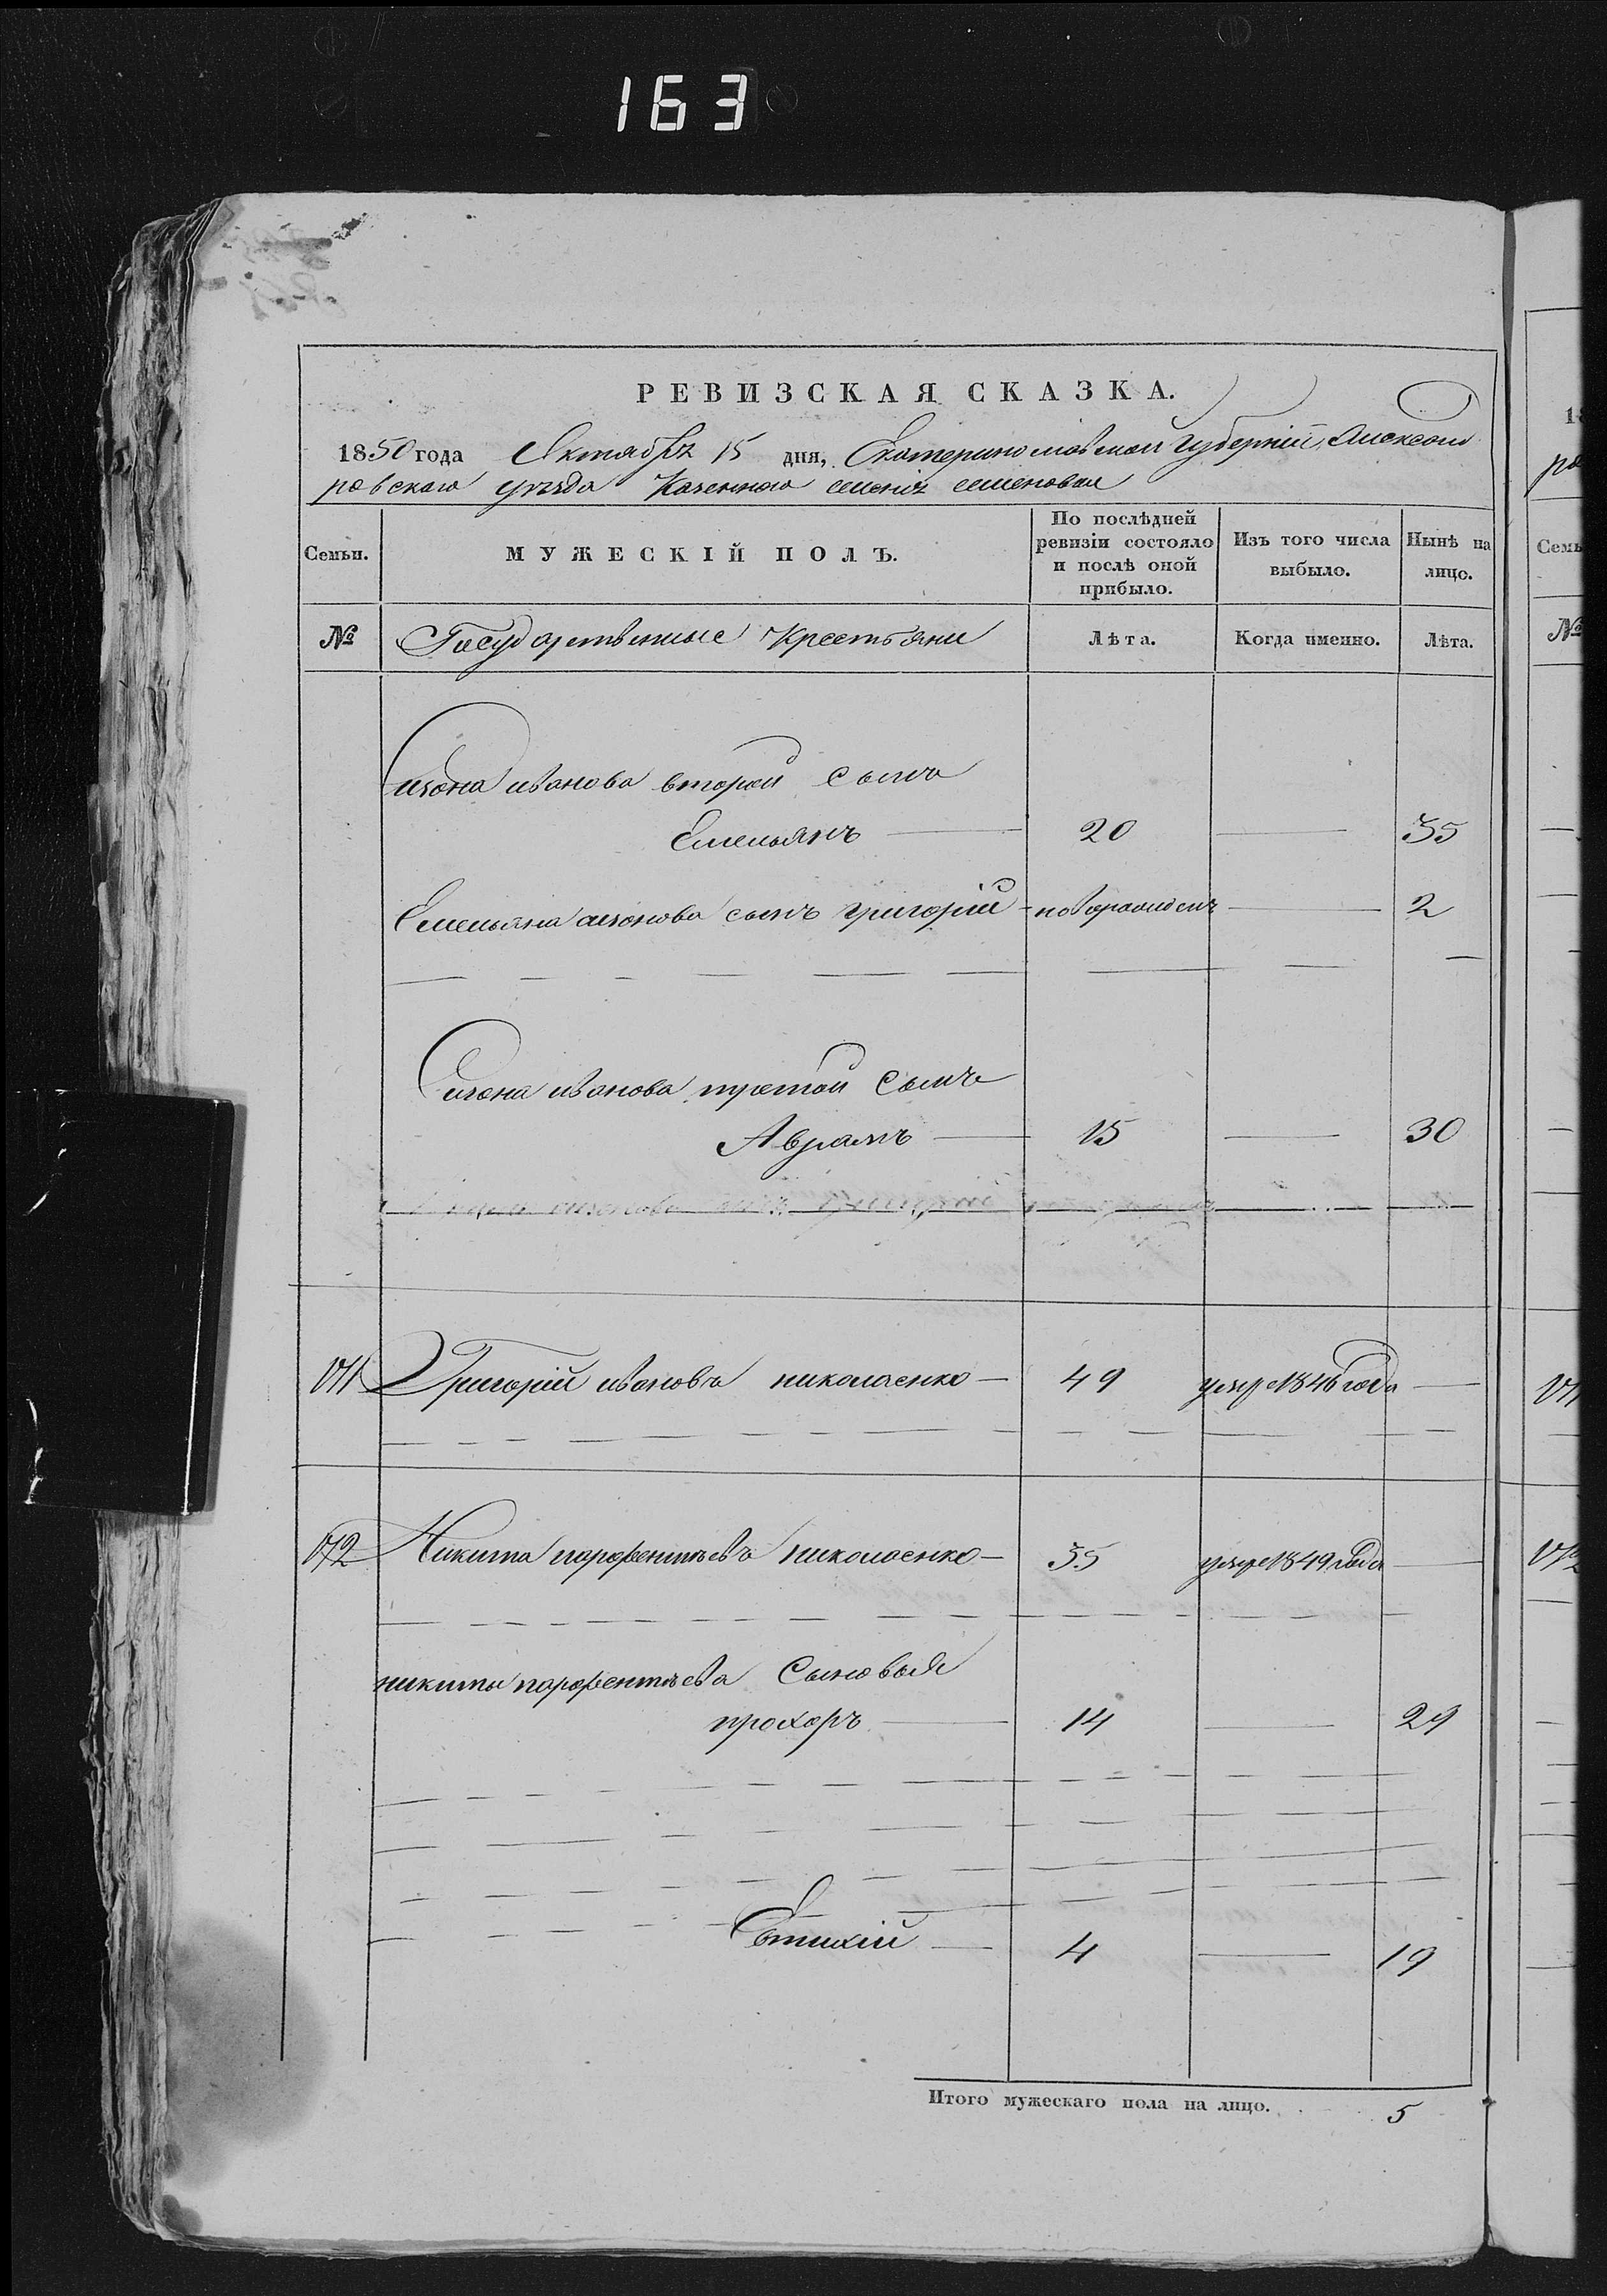 163
РЕВИЗСКАЯ СКАЗКА.
1850 года Октября 15 дня, Екатеринославской Губернiи, Александ
ровскаго уезда Казенного селенiя семеновки
Семьи. МУЖЕСКIЙ ПОЛЪ. По послѣдней ревизiи состояло и послѣ оной прибыло. Изъ того числа выбыло. Нынѣ на лицо.
№ Государственные Крестьяни Лѣта. Когда именно. Лѣта.
иванова второй сынъ
Емельянъ 20 35
Емельяна сынъ григорiй новорожденъ 2
иванова третой сынъ
Аврамъ 15 30
171 Григорiй ивановъ николаенко 49 умре 1846 года
172 Никита парфентьевъ николаенко 35 умре 1849 года
никиты парфентьева Сыновья
прохоръ 14 29
Евтихiй 4 19
Итого мужескаго пола на лицо. 5